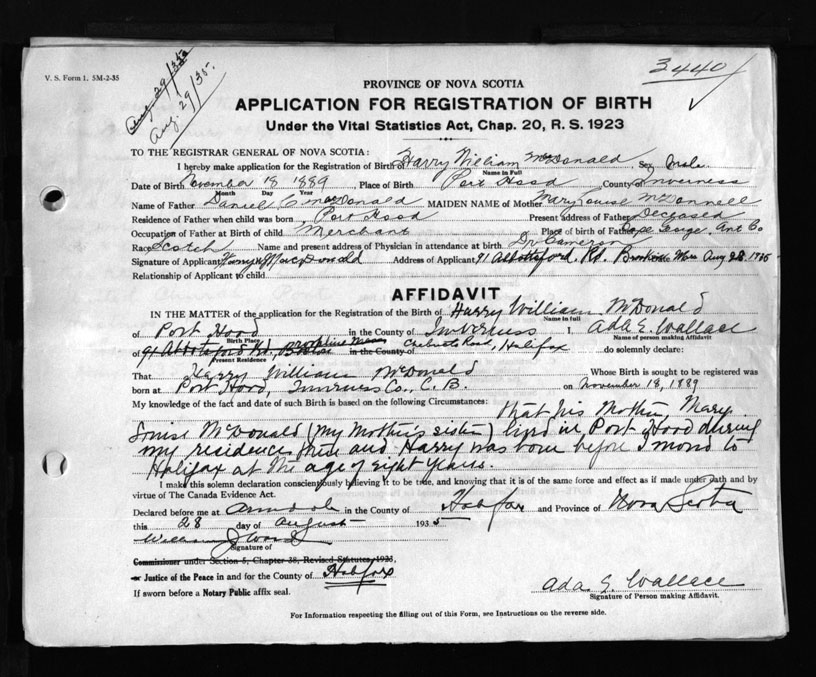 V. S. Form 1. 5M-2-35
Aug. 29/35
Aug. 29/35.
3440
PROVINCE OF NOVA SCOTIA
APPLICATION FOR REGISTRATION OF BIRTH
Under the Vital Statistics Act, Chap. 20, R. S. 1923
TO THE REGISTRAR GENERAL OF NOVA SCOTIA:
I hereby make application for the Registration of Birth of Harry William McDonald Sex Male
Name in Full
Date of Birth November 18 1889 Place of Birth Port Hood County of Inverness
Month Day Year
Name of Father Daniel C McDonald MAIDEN NAME of Mother Mary Louise McDonnell
Residence of Father when child was born Port Hood Present address of Father Deceased
Occupation of Father at Birth of child Merchant Place of birth of Father Cape George, Ant Co
Race Scotch Name and present address of Physician in attendance at birth Dr Cameron
Signature of Applicant Harry MacDonald Address of Applicant 91 Abbottsford Rd. Brookline Mass Aug 28 1935
Relationship of Applicant to child
AFFIDAVIT
IN THE MATTER of the application for the Registration of the Birth of Harry William McDonald
Name in full
of Port Hood in the County of Inverness I, Ada E. Wallace
Birth Place Name of person making Affidavit
of 91 Abbotsford Rd, Brookline Mass in the County of Road, Halifax do solemnly declare:
Present Residence
That Harry William McDonald Whose Birth is sought to be registered was
born at Port Hood, Inverness Co., C. B. on November 18, 1889
My knowledge of the fact and date of such Birth is based on the following Circumstances:
that his Mother, Mary
Louise McDonald (my Mother's sister) lived in Port Hood during
my residence there and Harry was born before I moved to
Halifax at the age of eight years.
I make this solemn declaration conscientiously believing it to be true, and knowing that it is of the same force and effect as if made under oath and by
virtue of The Canada Evidence Act.
Declared before me at in the County of Halifax and Province of Nova Scotia
this 28 day of August 1935
William J
Signature of
Commissioner under Section 5, Chapter 38, Revised Statutes, 1923,
or Justice of the Peace in and for the County of Halifax
If sworn before a Notary Public affix seal.
Ada E. Wallace
Signature of Person making Affidavit.
For Information respecting the filling out of this Form, see Instructions on the reverse side.